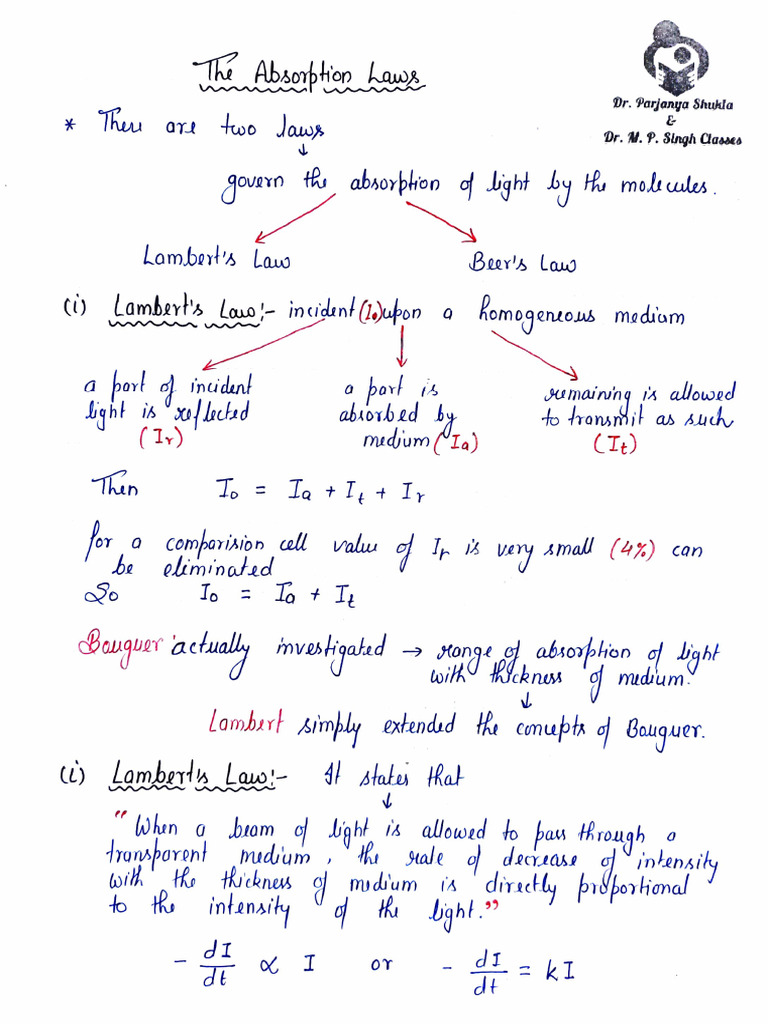 The Absorption Laws
Dr. Parjanya Shukla
&
Dr. M. P. Singh Classes
* There are two laws
↓
govern the absorption of light by the molecules.
Lambert's Law Beer's Law
(i) Lambert's Law:- incident (I₀) upon a homogeneous medium
a part of incident a part is remaining is allowed
light is reflected absorbed by to transmit as such
(Ir) medium (Ia) (It)
Then I₀ = Ia + It + Ir
for a comparision cell value of Ir is very small (4%) can
be eliminated
So I₀ = Ia + It
Bouguer actually investigated → range of absorption of light
with thickness of medium.
↓
Lambert simply extended the concepts of Bouguer.
(i) Lambert's Law:- It states that
↓
"When a beam of light is allowed to pass through a
transparent medium, the rate of decrease of intensity
with the thickness of medium is directly proportional
to the intensity of the light."
- dI/dt ∝ I or - dI/dt = kI